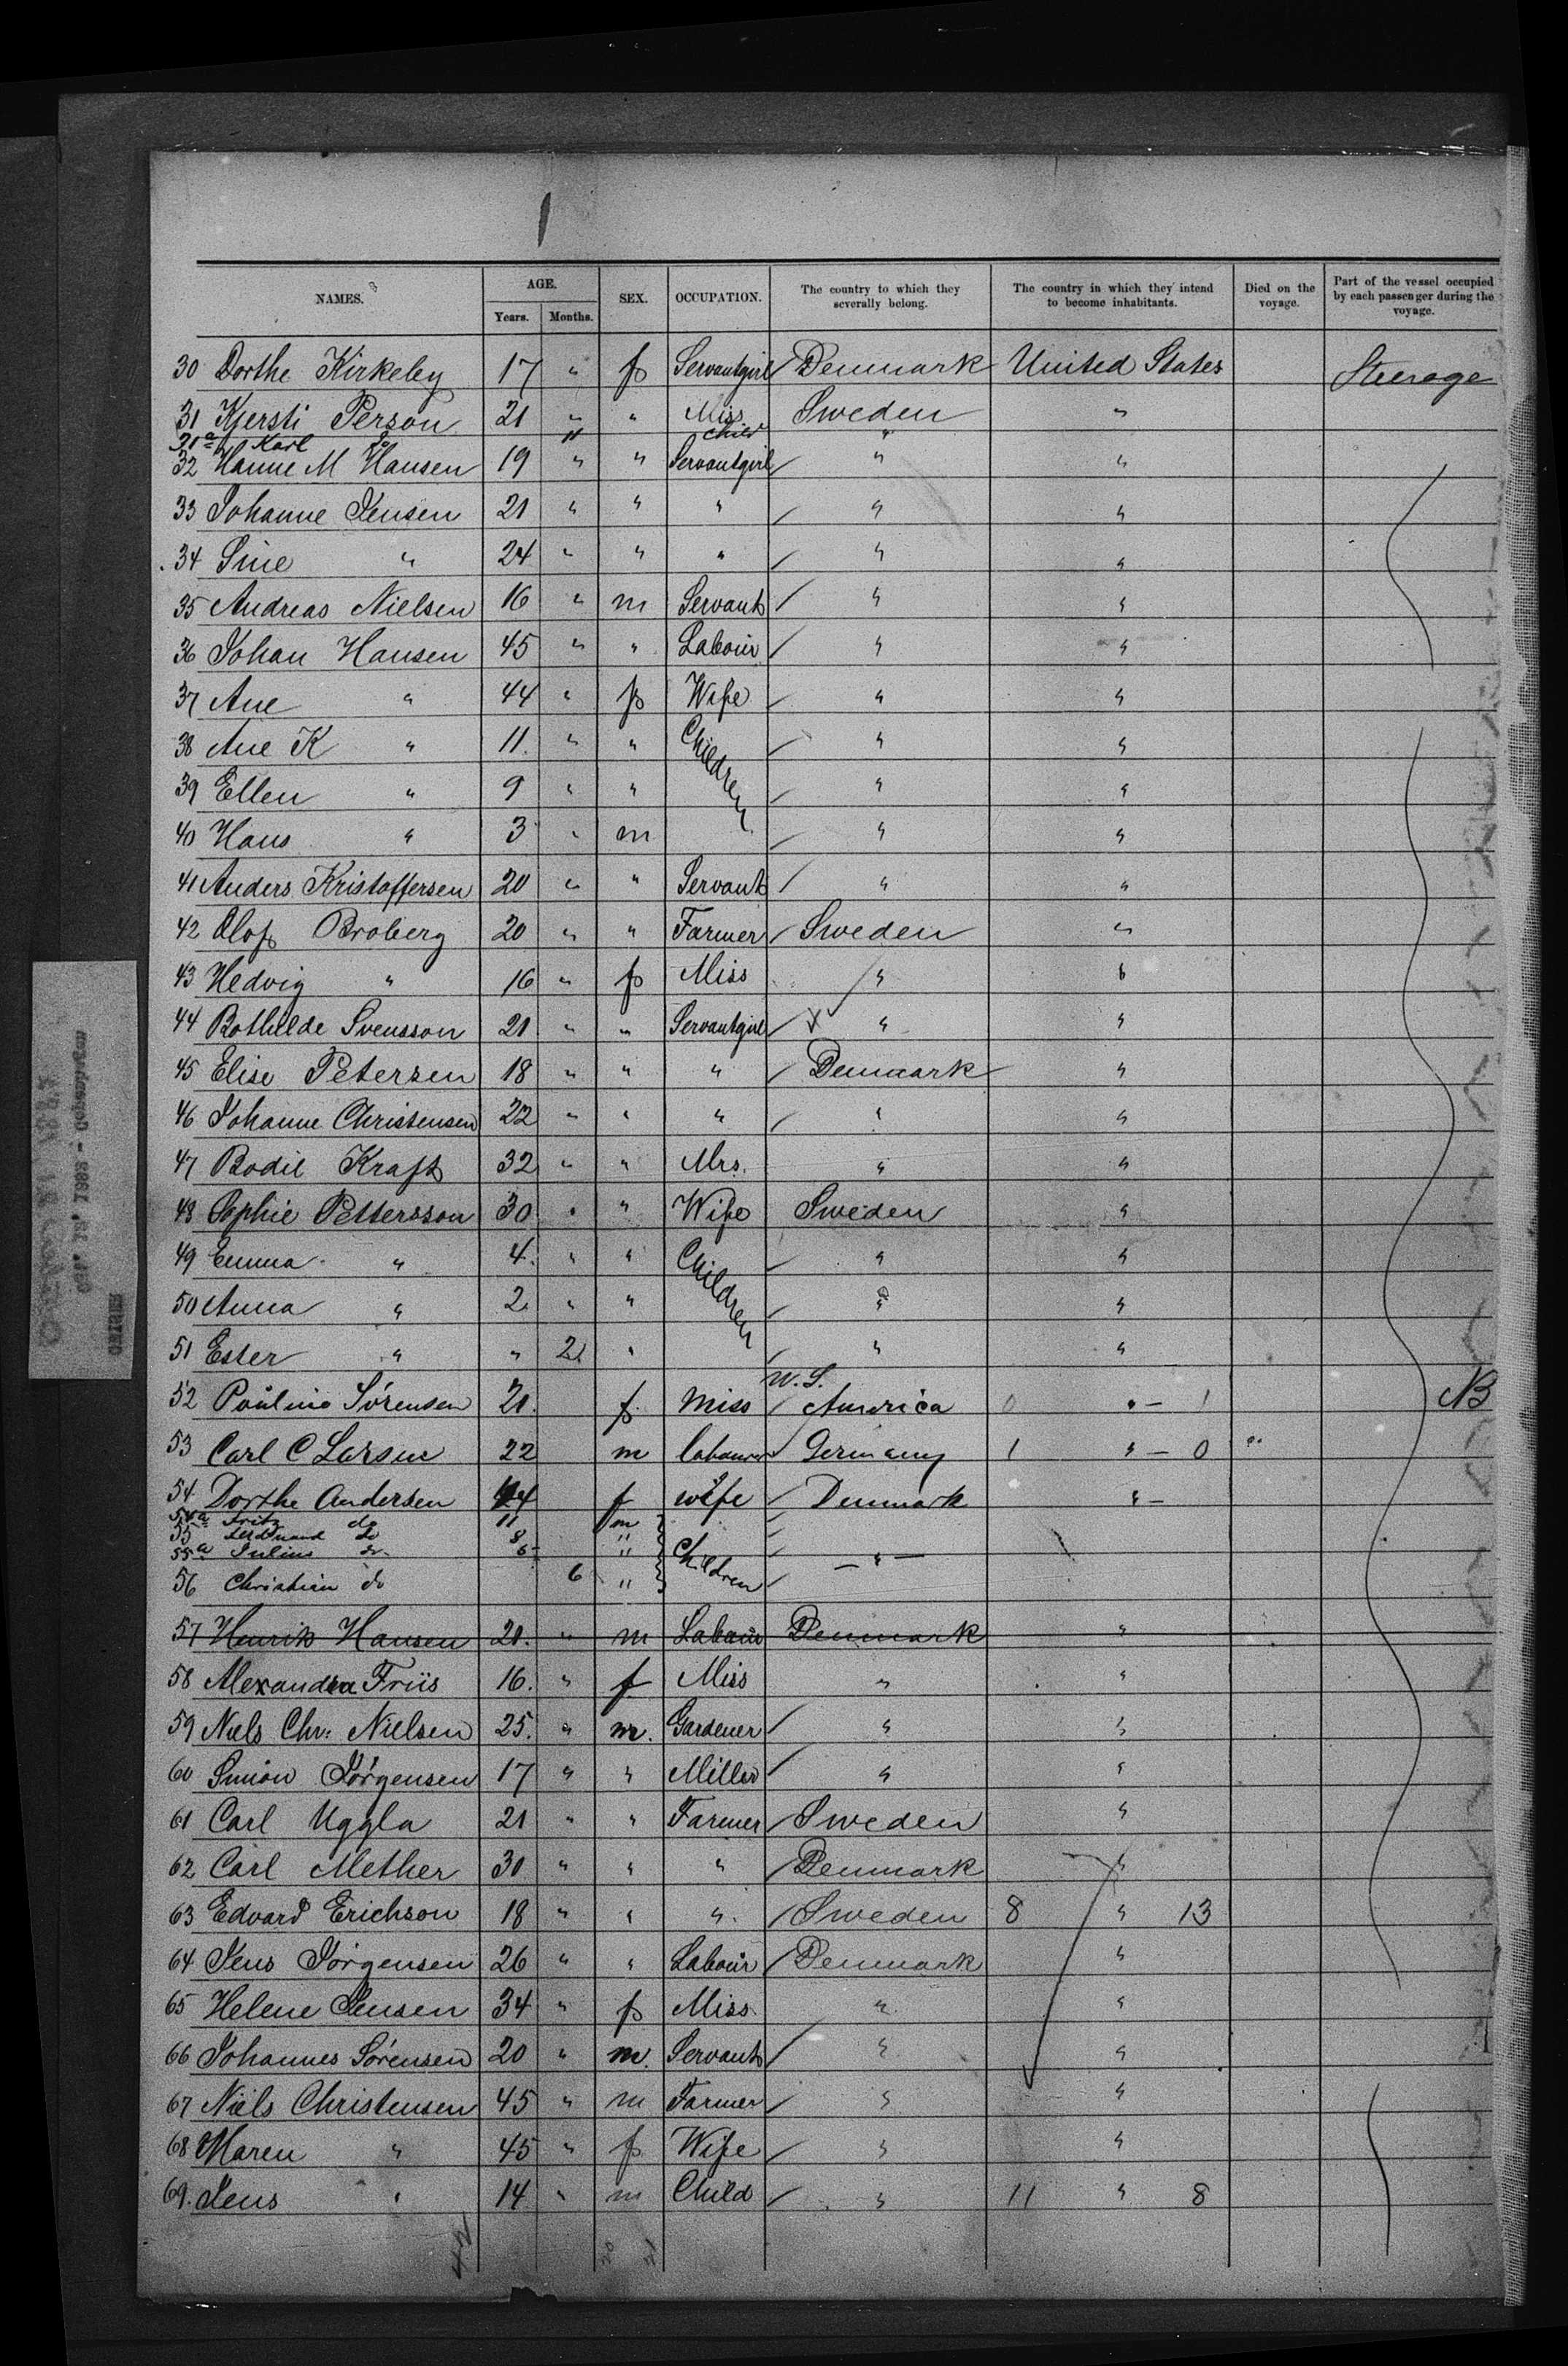 NAMES. AGE. SEX. OCCUPATION. The country to which they severally belong. The country in which they intend to become inhabitants. Died on the voyage. Part of the vessel occupied by each passenger during the voyage.
Years. Months.
30 Dorthe Kirkeby 17 " f Servantgirl Denmark United States Steerage
31 Kjersti Person 21 " " Miss Sweden "
31a Karl do 11 Child "
32 Hanne M Hansen 19 " " Servantgirl " "
33 Johanne Jensen 21 " " " " "
34 Sine " 24 " " " " "
35 Andreas Nielsen 16 " m Servant " "
36 Johan Hansen 45 " " Labour " "
37 Ane " 44 " f Wife " "
38 Ane K " 11 " " Children " "
39 Ellen " 9 " " " "
40 Hans " 3 " m " "
41 Anders Kristoffersen 20 " " Servant " "
42 Olof Broberg 20 " " Farmer Sweden "
43 Hedvig " 16 " f Miss " "
44 Bothilde Svensson 21 " " Servantgirl " "
45 Elise Petersen 18 " " " Denmark "
46 Johanne Christensen 22 " " " " "
47 Bodil Kraft 32 " " Mrs. " "
48 Sophie Pettersson 30 " " Wife Sweden "
49 Emma " 4 " " Children " "
50 Anna " 2 " " " "
51 Ester " " 2 " " "
52 Pauline Sörensen 21. f. Miss America 0 " - 1 NB
53 Carl C Larsen 22 m labourer Germany 1 " - 0
54 Dorthe Andersen 44 f wife Denmark " -
54a Fritz do 11 m
55 Ferdinand do 8 "
55a Julius do 6 " Children - " -
56 Christian do 6 "
57 Henrik Hansen 21. " m Labour Denmark "
58 Alexandra Friis 16. " f Miss " "
59 Niels Chr: Nielsen 25. " m. Gardener " "
60 Simon Jörgensen 17 " " Miller " "
61 Carl Uggla 21 " " Farmer Sweden "
62 Carl Mether 30 " " " Denmark "
63 Edvard Erichson 18 " " " Sweden 8 " 13
64 Jens Jörgensen 26 " " Labour Denmark "
65 Helene Jensen 34 " f Miss. " "
66 Johannes Sörensen 20 " m. Servant " "
67 Niels Christensen 45 " m Farmer " "
68 Maren " 45 " f Wife " "
69. Jens " 14 " m Child " 11 " 8
42 20 21